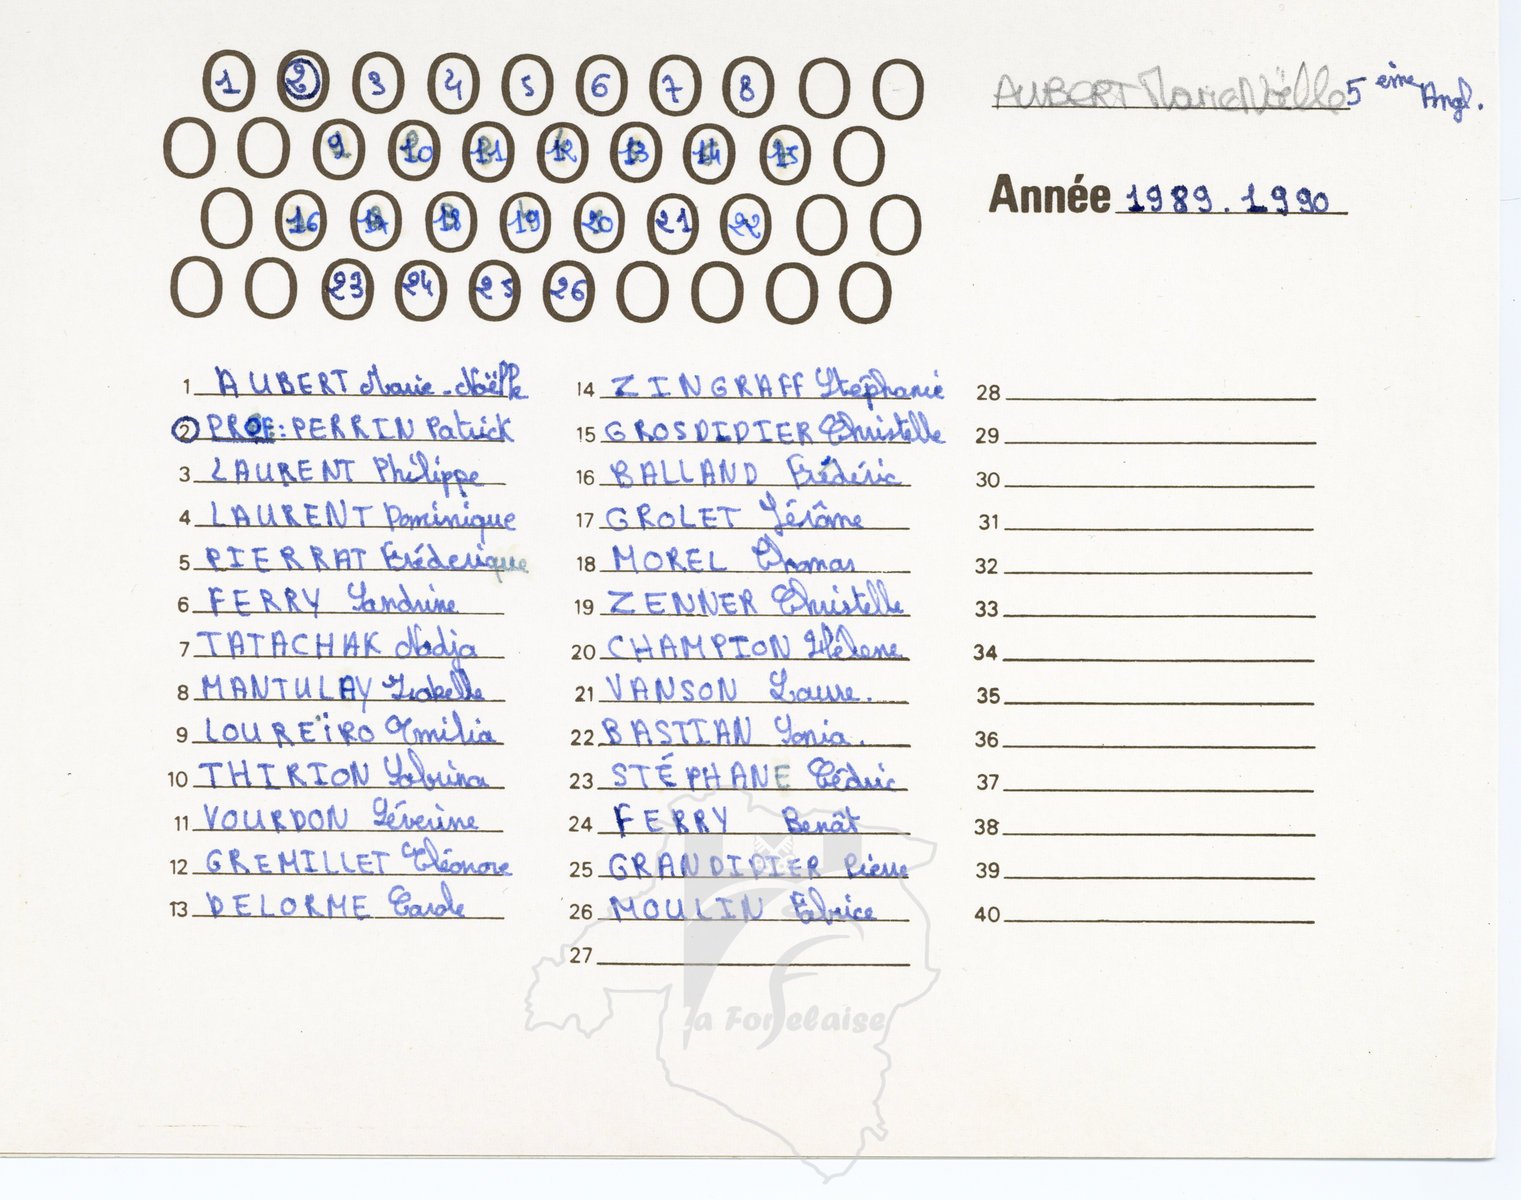 1 2 3 4 5 6 7 8
9 10 11 12 13 14 15
16 17 18 19 20 21 22
23 24 25 26
AUBERT Marie Noëlle 5 ème Angl.
Année 1989.1990
1 AUBERT Marie-Noëlle
2 PROF: PERRIN Patrick
3 LAURENT Philippe
4 LAURENT Dominique
5 PIERRAT Fréderique
6 FERRY Sandrine
7 TATACHAK Nadja
8 MANTULAY Isabelle
9 LOUREÏRO Emilia
10 THIRION Sabrina
11 VOURDON Séverine
12 GREMILLET Eléonore
13 DELORME Carole
14 ZINGRAFF Stéphanie
15 GROSDIDIER Christelle
16 BALLAND Frédéric
17 GROLET Jérôme
18 MOREL Thomas
19 ZENNER Christelle
20 CHAMPION Hélène
21 VANSON Laure.
22 BASTIAN Sonia.
23 STÉPHANE Cédric
24 FERRY Benoît
25 GRANDIDIER Pierre
26 MOULIN Fabrice
27
28
29
30
31
32
33
34
35
36
37
38
39
40
la Forgelaise